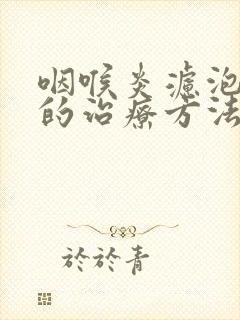 咽喉炎濾泡
的治療方法
於於青